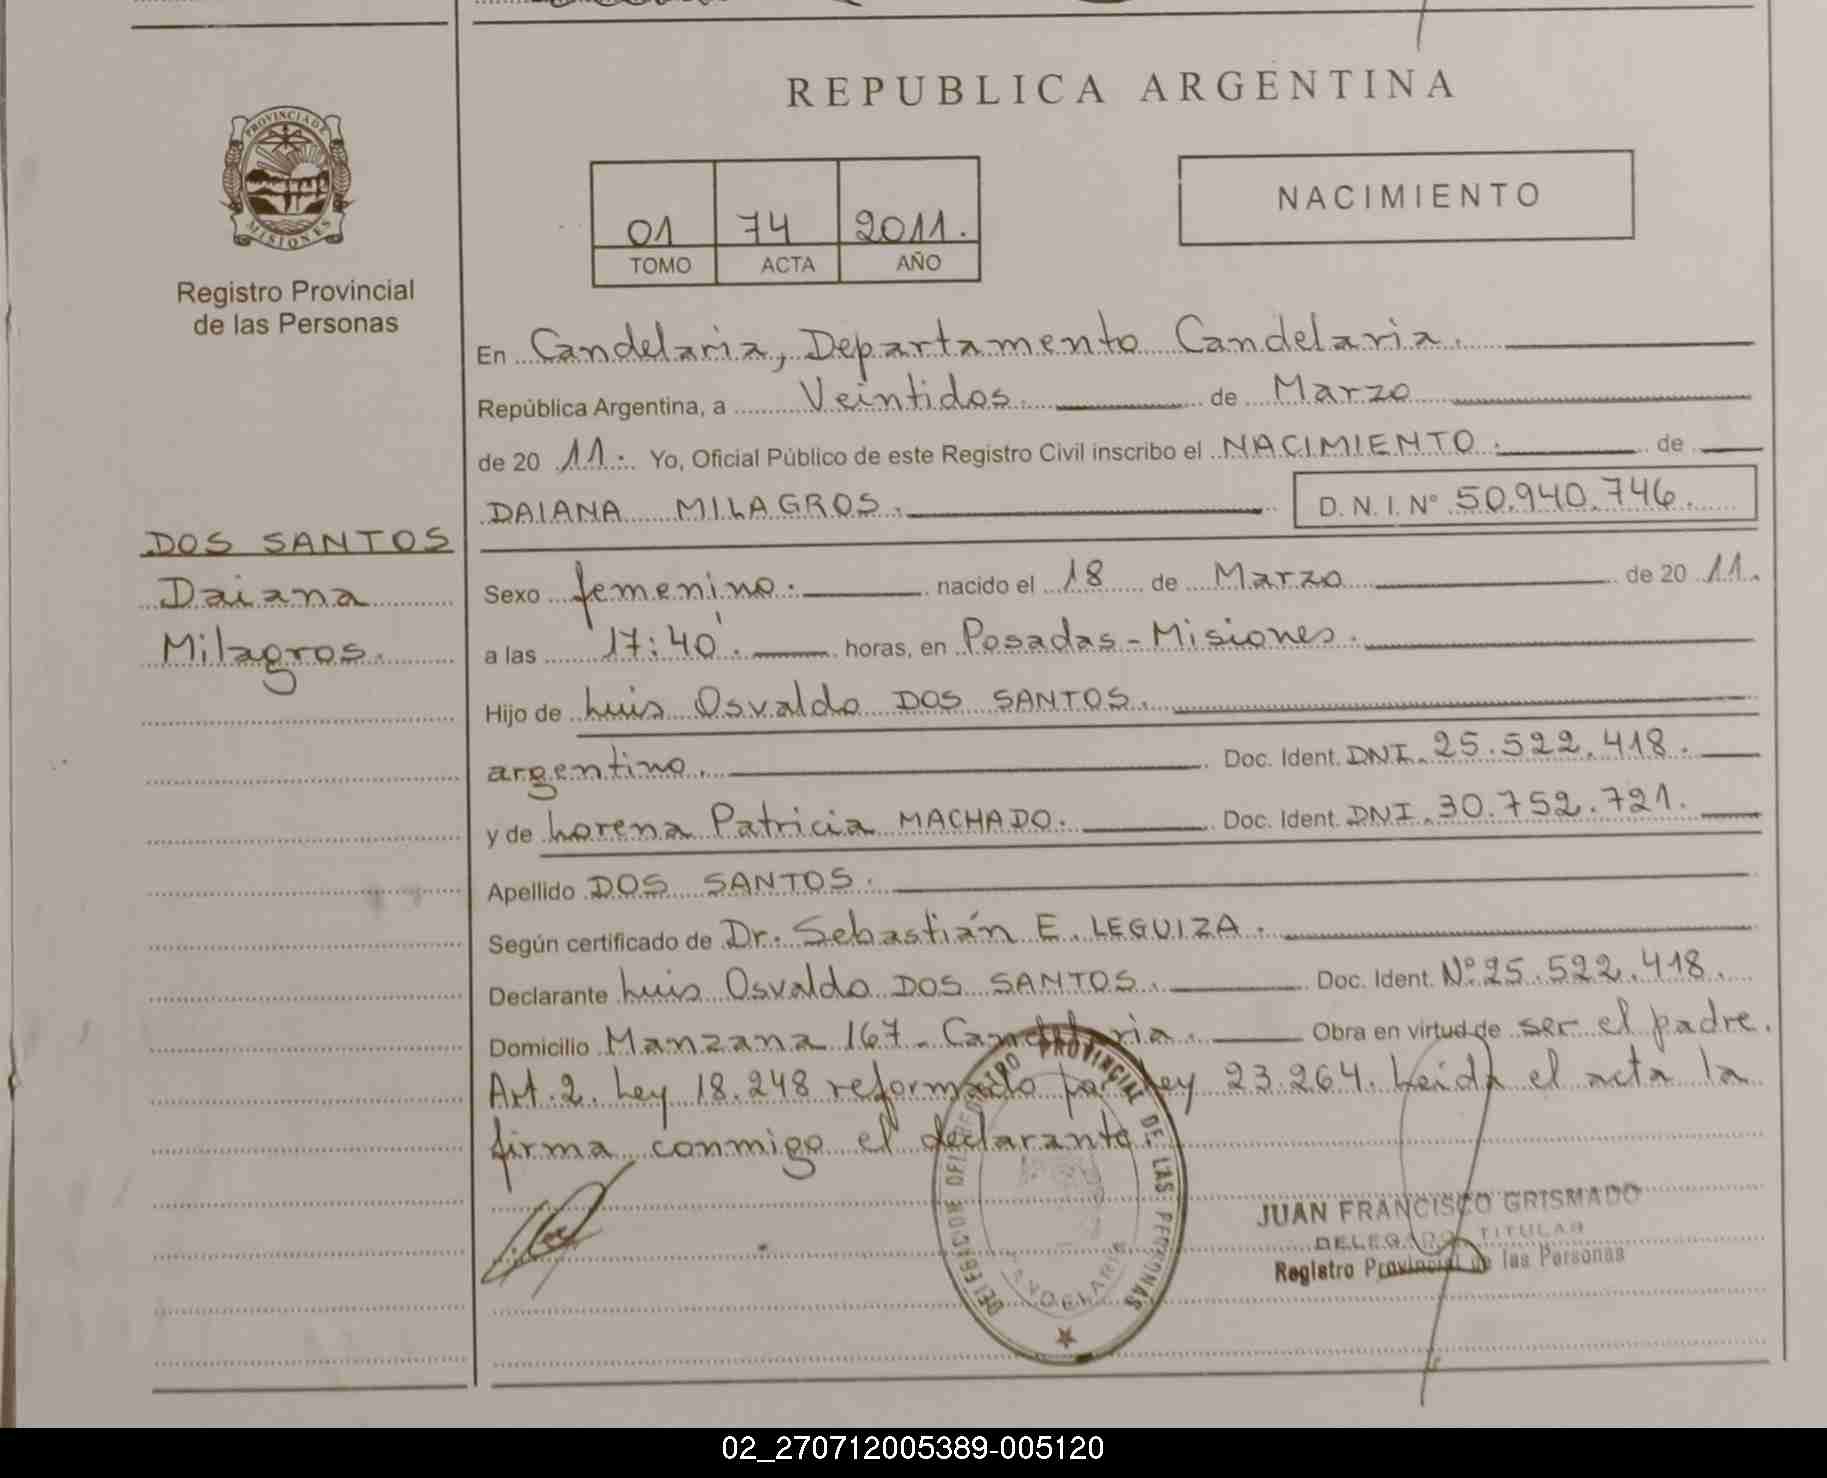 REPUBLICA ARGENTINA
PROVINCIA DE
MISIONES
Registro Provincial
de las Personas
01 74 2011.
TOMO ACTA AÑO
NACIMIENTO
En Candelaria, Departamento Candelaria.
República Argentina, a Veintidos. de Marzo
de 20 11. Yo, Oficial Público de este Registro Civil inscribo el NACIMIENTO. de
DAIANA MILAGROS. D. N. I. Nº 50.940.746.
DOS SANTOS
Daiana
Milagros.
Sexo femenino. nacido el 18 de Marzo de 20 11.
a las 17:40'. horas, en Posadas - Misiones.
Hijo de Luis Osvaldo DOS SANTOS.
argentino. Doc. Ident. DNI. 25.522.418.
y de Lorena Patricia MACHADO. Doc. Ident. DNI. 30.752.721.
Apellido DOS SANTOS.
Según certificado de Dr. Sebastián E. LEGUIZA.
Declarante Luis Osvaldo DOS SANTOS. Doc. Ident. Nº 25.522.418.
Domicilio Manzana 167 - Candelaria. Obra en virtud de ser el padre.
Art. 2. Ley 18.248 reformado por Ley 23.264. Leida el acta la
firma conmigo el declarante.
DELEGACION DEL REGISTRO PROVINCIAL DE LAS PERSONAS
CANDELARIA
JUAN FRANCISCO GRISMADO
DELEGADO TITULAR
Registro Provincial de las Personas
02_270712005389-005120